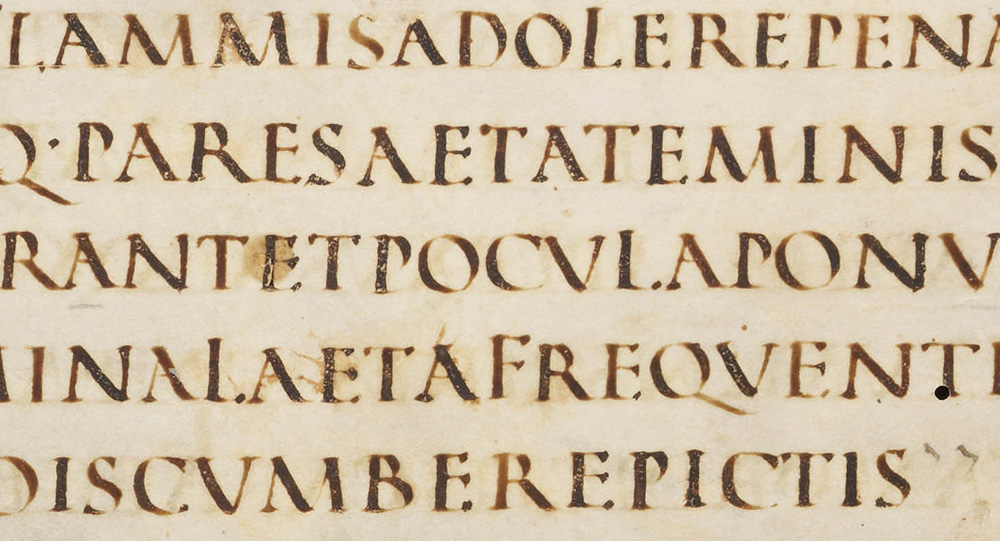 LAMMISADOLEREPENA
Q·PARESAETATEMINIS
RANTETPOCVLAPONV
MINALAETAFREQVENT
DISCVMBEREPICTIS